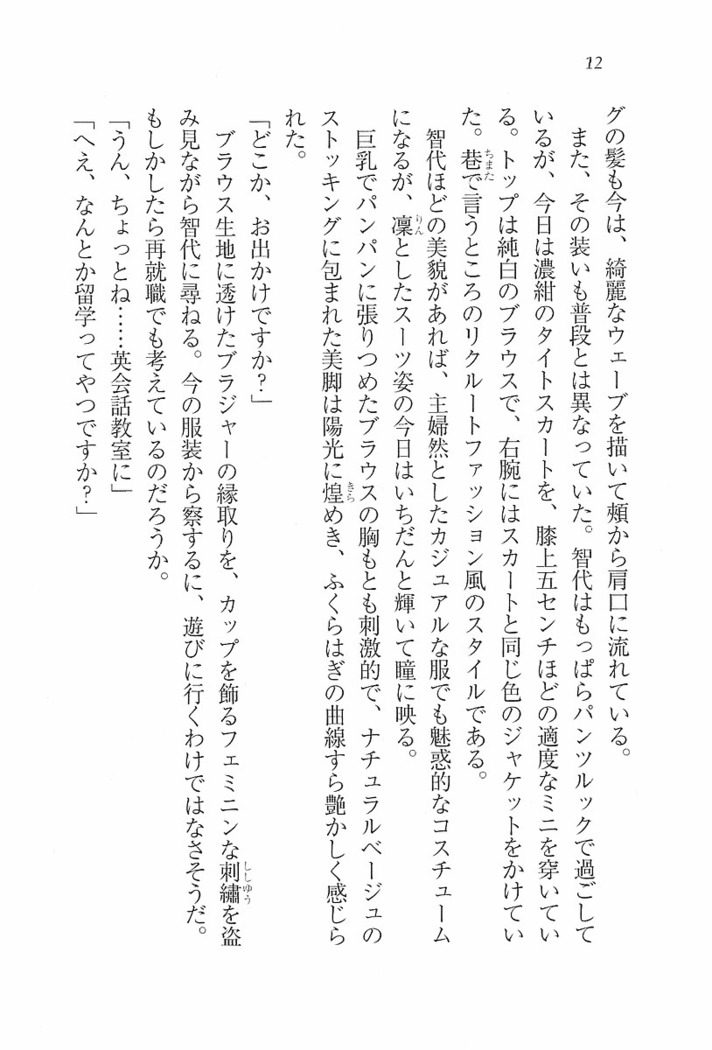 12
グの髪も今は、綺麗なウェーブを描いて頰から肩口に流れている。
また、その装いも普段とは異なっていた。智代はもっぱらパンツルックで過ごして
いるが、今日は濃紺のタイトスカートを、膝上五センチほどの適度なミニを穿いてい
る。トップは純白のブラウスで、右腕にはスカートと同じ色のジャケットをかけてい
た。巷で言うところのリクルートファッション風のスタイルである。
智代ほどの美貌があれば、主婦然としたカジュアルな服でも魅惑的なコスチューム
になるが、凜としたスーツ姿の今日はいちだんと輝いて瞳に映る。
巨乳でパンパンに張りつめたブラウスの胸もとも刺激的で、ナチュラルベージュの
ストッキングに包まれた美脚は陽光に煌めき、ふくらはぎの曲線すら艶かしく感じら
れた。
「どこか、お出かけですか？」
ブラウス生地に透けたブラジャーの縁取りを、カップを飾るフェミニンな刺繡を盗
み見ながら智代に尋ねる。今の服装から察するに、遊びに行くわけではなさそうだ。
もしかしたら再就職でも考えているのだろうか。
「うん、ちょっとね……英会話教室に」
「へえ、なんとか留学ってやつですか？」